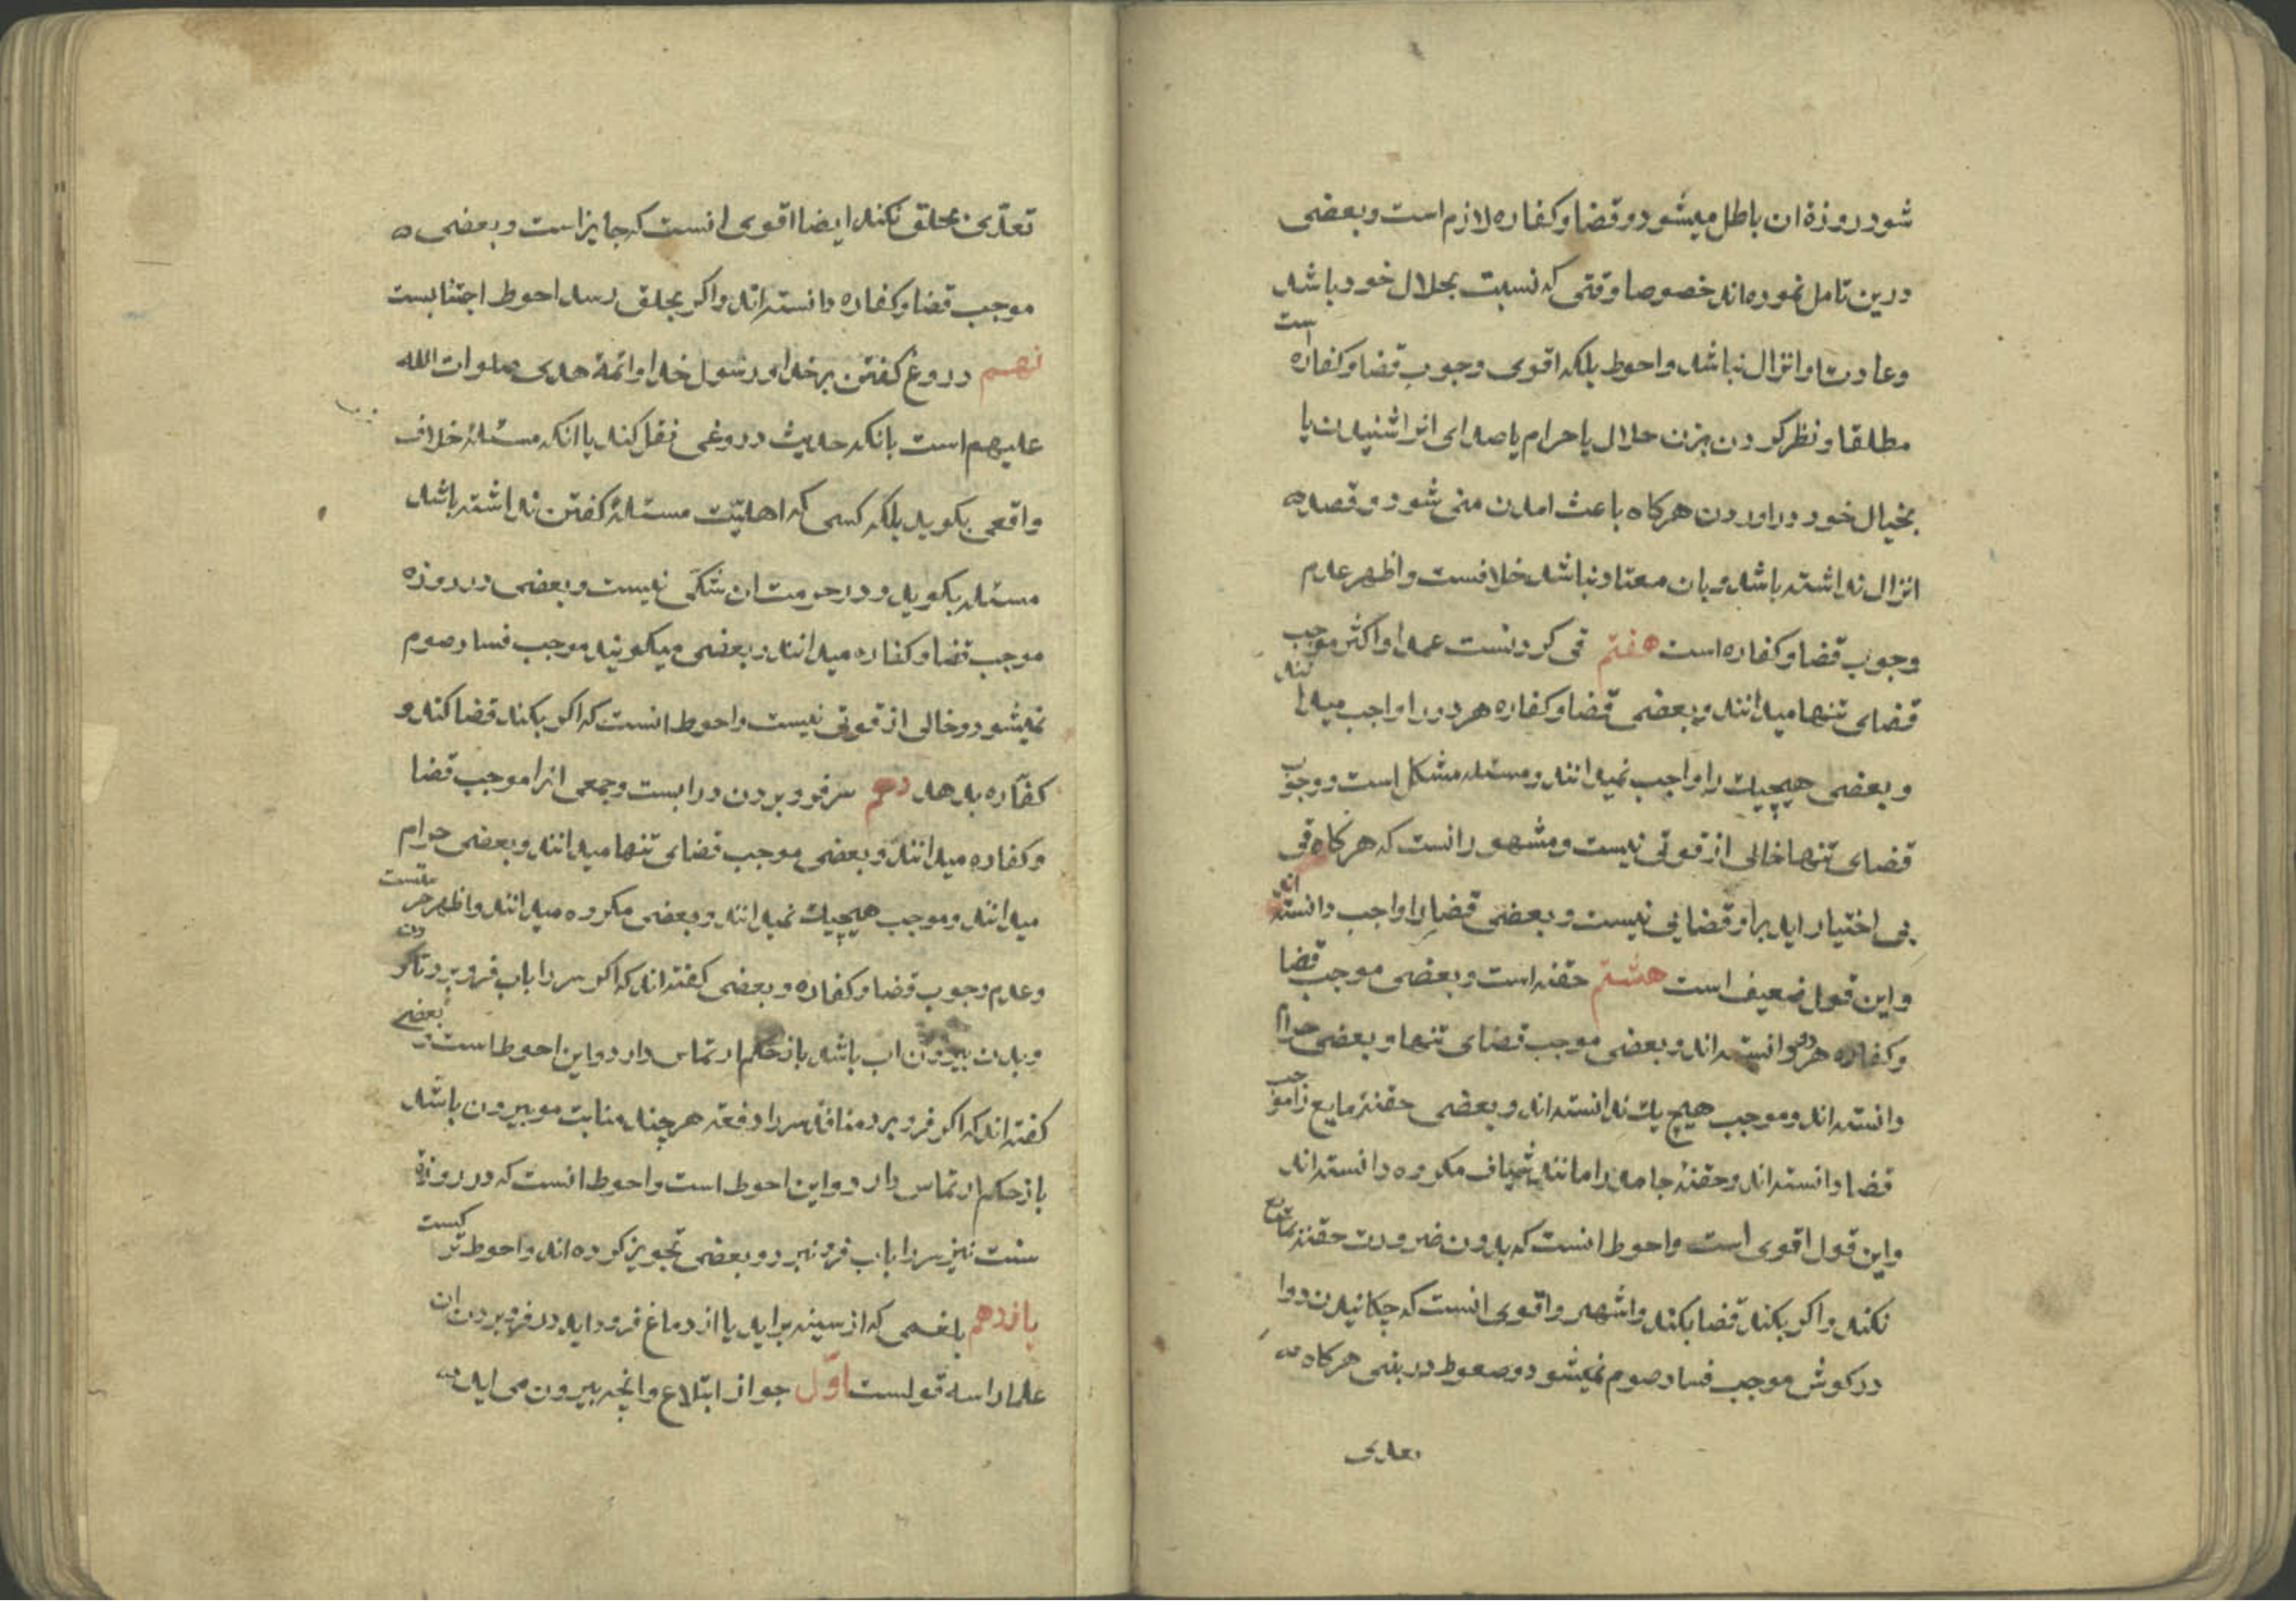 شود روزهٔ ان باطل میشود و قضا و کفاره لازم است و بعضی
درین تامل نموده‌اند خصوصا وقتی که نسبت بحلال خود باشد
وعادت او انزال نباشد و احوط بلکه اقوی وجوب قضا و کفاره است
مطلقا و نظر کردن بزن حلال یا حرام یا صدای انرا شنیدن یا
بخیال خود دراوردن هرکاه باعث امدن منی شود و قصد
انزال نداشته باشد و بان معتاد نباشد خلافست و اظهر عدم
وجوب قضا و کفاره است هفتم قی کردنست عمدا و اکثر موجب
قضای تنها میدانند و بعضی قضا و کفاره هر دو را واجب میدانند
و بعضی هیچیک را واجب نمیدانند و مسئله مشکل است و وجوب
قضای تنها خالی از قوتی نیست و مشهور انست که هرکاه قی
بی اختیار اید براو قضایی نیست و بعضی قضا را واجب دانسته‌اند
و این قول ضعیف است هشتم حقنه است و بعضی موجب قضا
و کفاره هر دو دانسته‌اند و بعضی موجب قضای تنها و بعضی حرام
دانسته‌اند و موجب هیچ یک ندانسته‌اند و بعضی حقنهٔ مایع را موجب
قضا دانسته‌اند و حقنهٔ جامد را مانند شیاف مکروه دانسته‌اند
و این قول اقوی است و احوط انست که بدون ضرورت حقنهٔ بمایع
نکند و اکر بکند قضا بکند و اشهر و اقوی انست که چکانیدن دوا
در کوش موجب فساد صوم نمیشود و صعوط در بینی هرکاه
تعدی
تعدّی بحلق نکند ایضا اقوی انست که جایز است و بعضی
موجب قضا و کفاره دانسته‌اند و اکر بحلق رسد احوط اجتنابست
نهم دروغ کفتن برخدا و رسول خدا و ائمهٔ هدی صلوات الله
علیهم است بانکه حدیث دروغی نقل کند یا انکه مسئلهٔ خلاف
واقعی بکوید بلکه کسی که اهلیّت مسئلهٔ کفتن نداشته باشد
مسئله بکوید و در حرمت ان شکّی نیست و بعضی در روزه
موجب قضا و کفاره میدانند و بعضی میکویند موجب فساد صوم
نمیشود و خالی از قوتی نیست و احوط انست که اکر بکند قضا کند و
کفّاره بدهد دهم سر فرو بردن در ابست و جمعی انرا موجب قضا
و کفاره میدانند و بعضی موجب قضای تنها میدانند و بعضی حرام
میدانند و موجب هیچیک نمیدانند و بعضی مکروه میدانند و اظهر حرمتست
و عدم وجوب قضا و کفاره و بعضی کفته‌اند که اکر سر را باب فرو برد تا کردن
و بدن بیرون اب باشد باز حکم ارتماس دارد و این احوط است و بعضی
کفته‌اند که اکر فرو برد منافذ سر را دفعة هر چند منابت مو بیرون باشد
باز حکم ارتماس دارد و این احوط است و احوط انست که در روزهٔ
سنت نیز سر را باب فرو نبرد و بعضی تجویز کرده‌اند و احوط ترکست
یازدهم بلغمی که از سینه براید یا از دماغ فرود اید در فرو بردن ان
علما را سه قولست اوّل جواز ابتلاع و انچه بیرون می اید